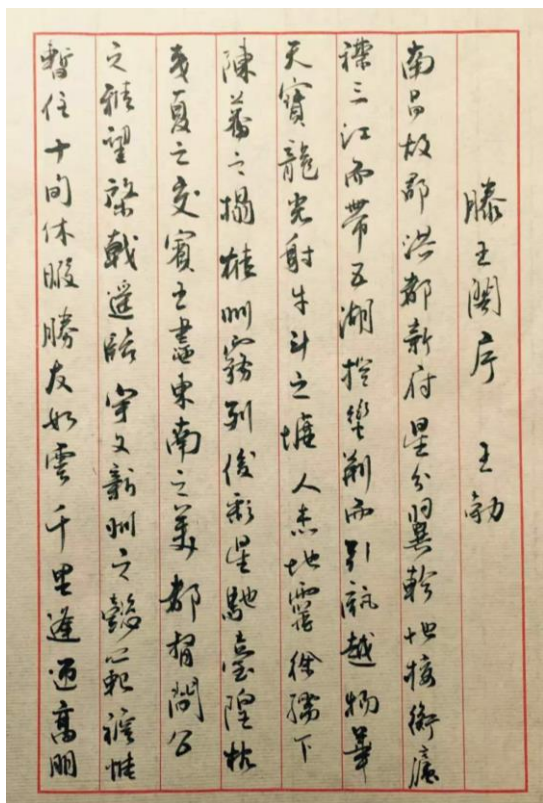 滕王閣序 王勃
南昌故郡洪都新府星分翼軫地接衡廬
襟三江而帶五湖控蠻荊而引甌越物華
天寶龍光射牛斗之墟人杰地靈徐孺下
陳蕃之榻雄州霧列俊彩星馳臺隍枕
夷夏之交賓主盡東南之美都督閻公
之雅望棨戟遙臨宇文新州之懿範襜帷
暫住十旬休暇勝友如雲千里逢迎高朋